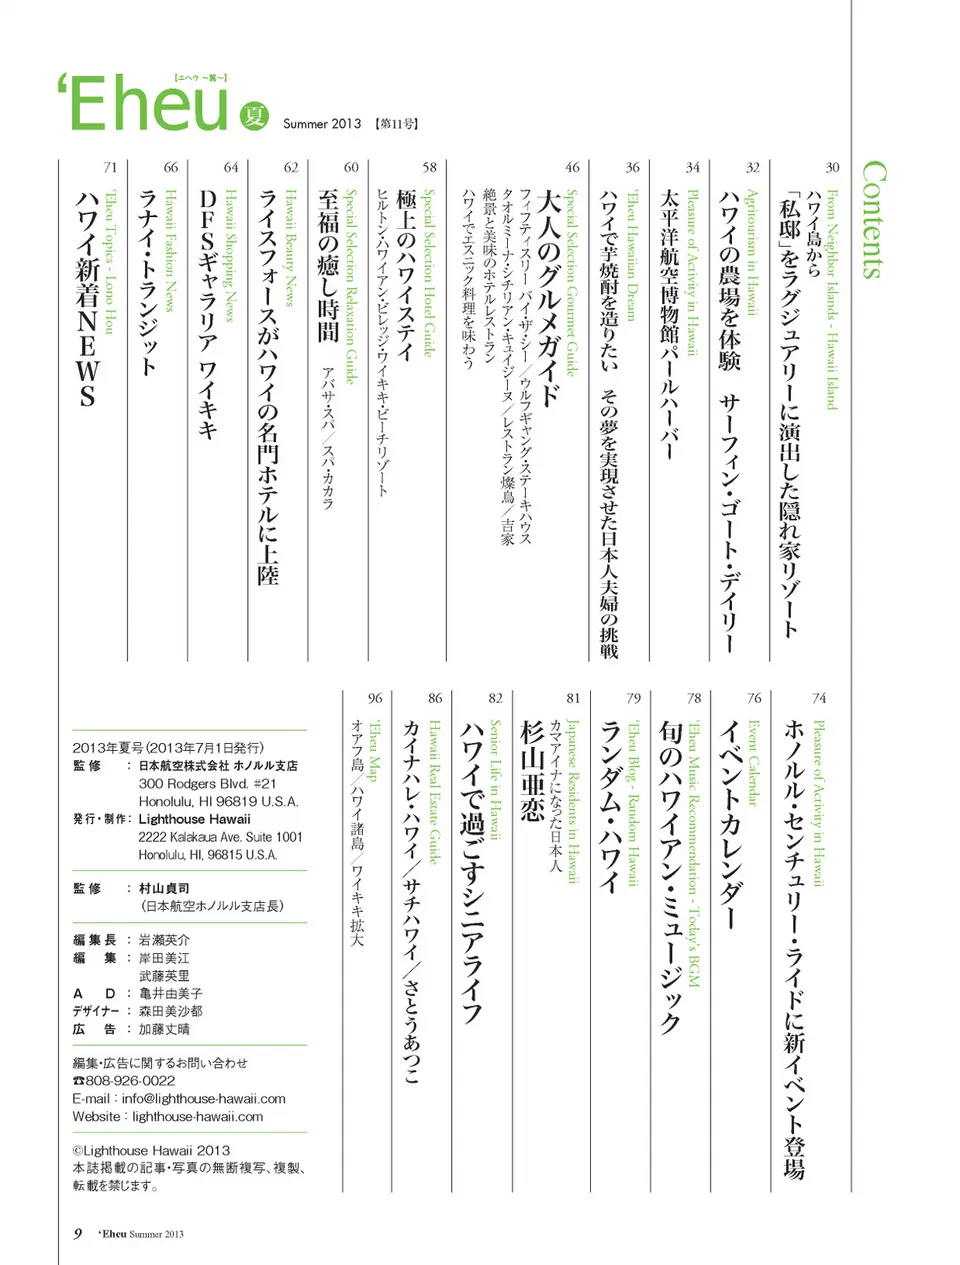 【エヘウ ～翼～】
‘Eheu 夏
Summer 2013 【第11号】
Contents
30
From Neighbor Islands - Hawaii Island
ハワイ島から
「私邸」をラグジュアリーに演出した隠れ家リゾート
32
Agritourism in Hawaii
ハワイの農場を体験 サーフィン・ゴート・デイリー
34
Pleasure of Activity in Hawaii
太平洋航空博物館パールハーバー
36
‘Eheu Hawaiian Dream
ハワイで芋焼酎を造りたい その夢を実現させた日本人夫婦の挑戦
46
Special Selection Gourmet Guide
大人のグルメガイド
フィフティスリー バイ・ザ・シー／ウルフギャング・ステーキハウス
タオルミーナ・シチリアン・キュイジーヌ／レストラン燦鳥／吉家
絶景と美味のホテルレストラン
ハワイでエスニック料理を味わう
58
Special Selection Hotel Guide
極上のハワイステイ
ヒルトン・ハワイアン・ビレッジ・ワイキキ・ビーチリゾート
60
Special Selection Relaxation Guide
至福の癒し時間 アバサ・スパ／スパ・カカラ
62
Hawaii Beauty News
ライスフォースがハワイの名門ホテルに上陸
64
Hawaii Shopping News
DFSギャラリア ワイキキ
66
Hawaii Fashion News
ラナイ・トランジット
71
‘Eheu Topics - Lono Hou
ハワイ新着NEWS
74
Pleasure of Activity in Hawaii
ホノルル・センチュリー・ライドに新イベント登場
76
Event Calendar
イベントカレンダー
78
‘Eheu Music Recommendation - Today's BGM
旬のハワイアン・ミュージック
79
‘Eheu Blog - Random Hawaii
ランダム・ハワイ
81
Japanese Residents in Hawaii
カマアイナになった日本人
杉山亜恋
82
Senior Life in Hawaii
ハワイで過ごすシニアライフ
86
Hawaii Real Estate Guide
カイナハレ・ハワイ／サチハワイ／さとうあつこ
96
‘Eheu Map
オアフ島／ハワイ諸島／ワイキキ拡大
2013年夏号（2013年7月1日発行）
監修 ： 日本航空株式会社 ホノルル支店
300 Rodgers Blvd. #21
Honolulu, HI 96819 U.S.A.
発行・制作： Lighthouse Hawaii
2222 Kalakaua Ave. Suite 1001
Honolulu, HI, 96815 U.S.A.
監修 ： 村山貞司
（日本航空ホノルル支店長）
編集長 ： 岩瀬英介
編集 ： 岸田美江
武藤英里
AD ： 亀井由美子
デザイナー ： 森田美沙都
広告 ： 加藤丈晴
編集・広告に関するお問い合わせ
☎808-926-0022
E-mail：info@lighthouse-hawaii.com
Website：lighthouse-hawaii.com
©Lighthouse Hawaii 2013
本誌掲載の記事・写真の無断複写、複製、
転載を禁じます。
9 ‘Eheu Summer 2013